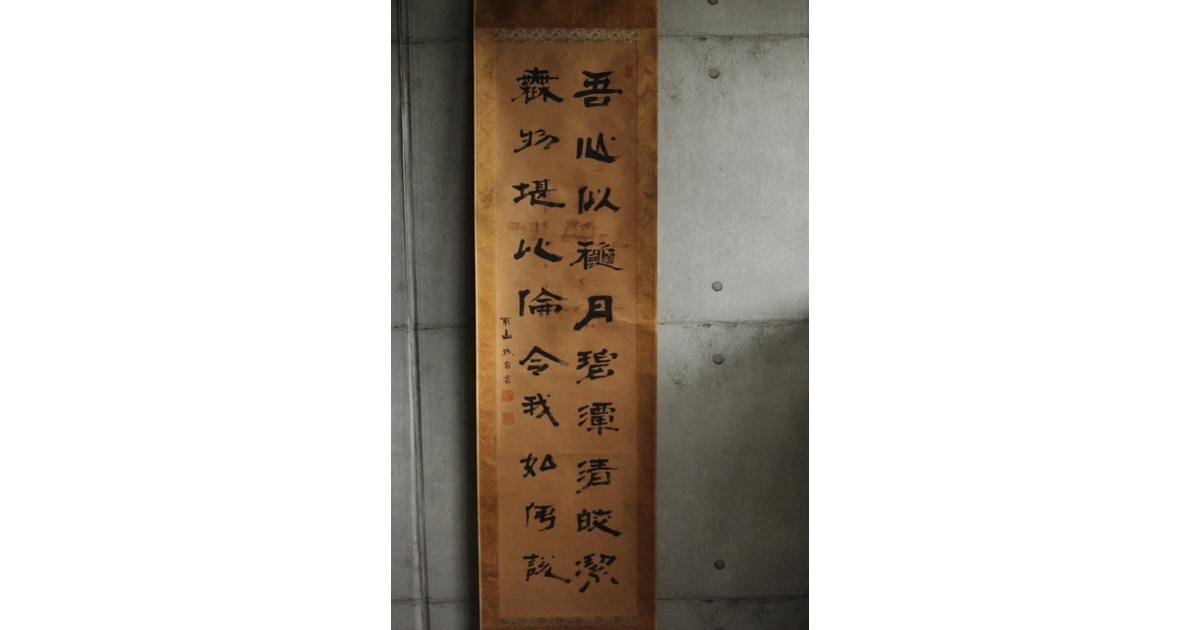 吾心似龝月碧潭清皎潔
無物堪比倫令我如何説